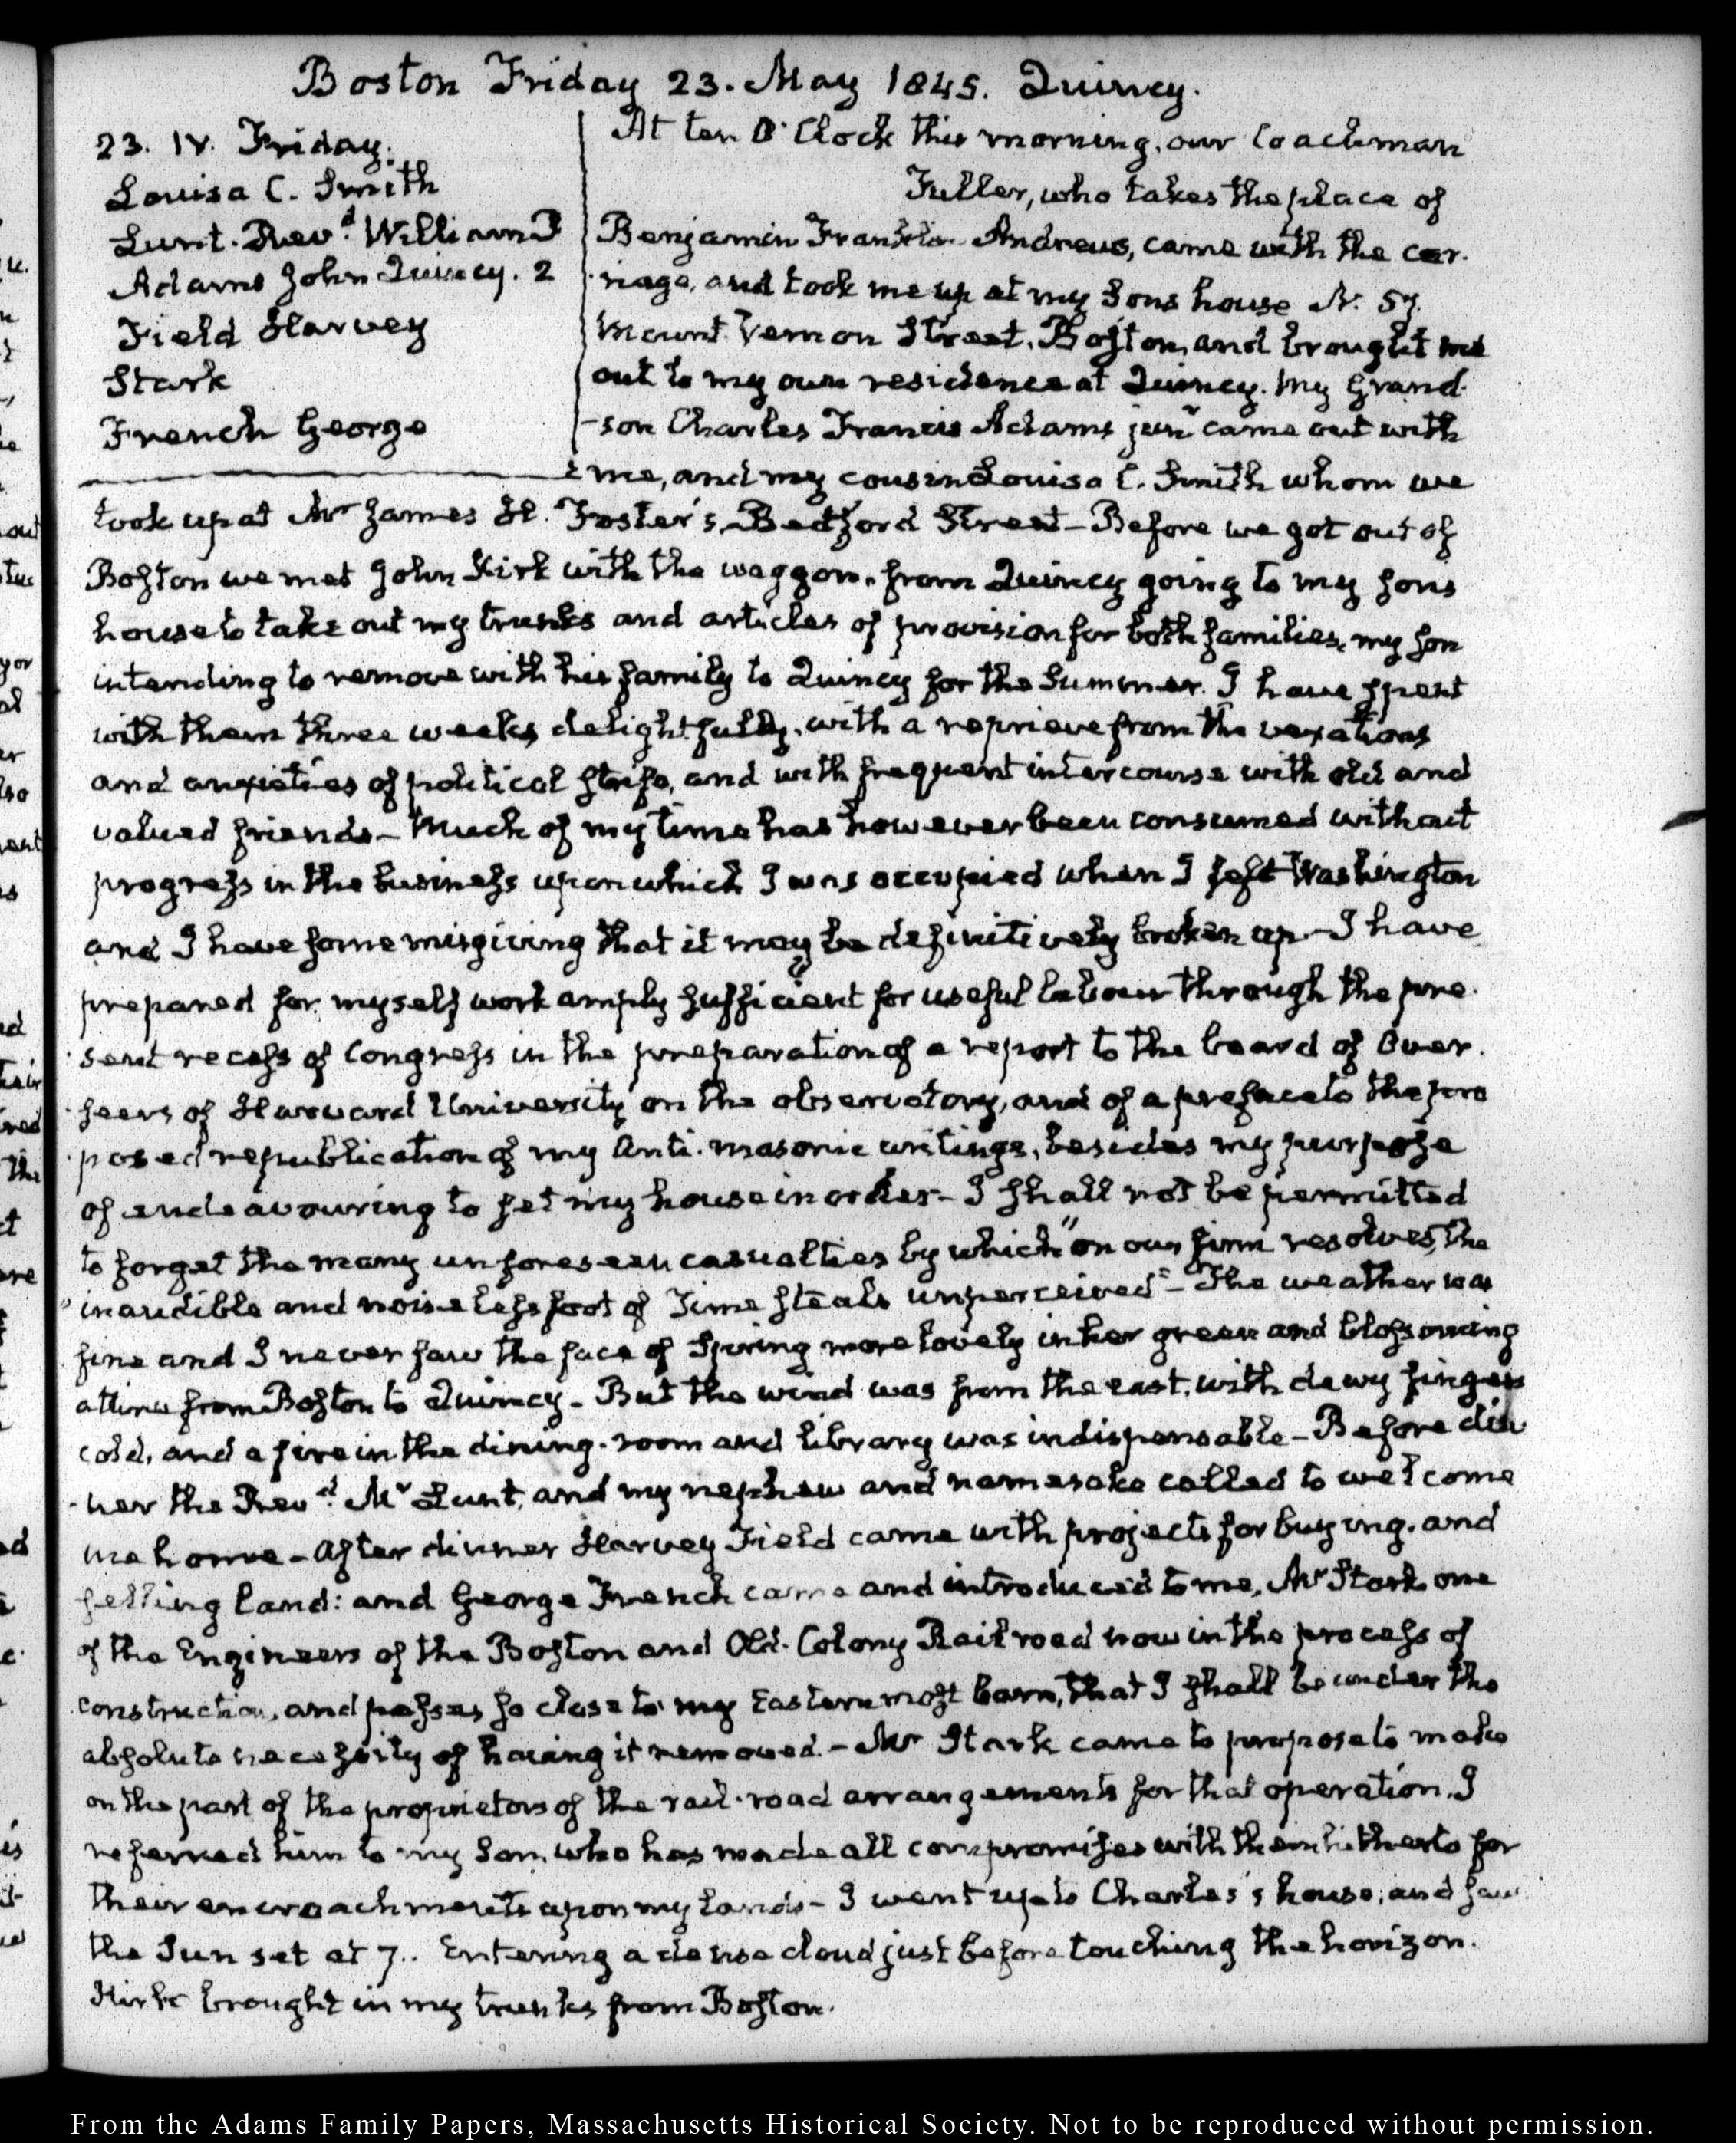 Boston Friday 23. May 1845. Quincy.
23. IV. Friday.
Louisa C. Smith
Lunt. Revd. William P
Adams John Quincy. 2
Field Harvey
Stark
French George
At ten O'Clock this morning, our Coachman
Fuller, who takes the place of
Benjamin Franklin Andrews, came with the car-
riage, and took me up at my Sons house N. 57.
Mount Vernon Street, Boſton, and brought me
out to my own residence at Quincy. My Grand-
-son Charles Francis Adams junr came out with
me, and my cousin Louisa C. Smith whom we
took up at Mr James H. Foster's, Bedford Street – Before we got out of
Boſton we met John Kirk with the waggon, from Quincy going to my ſons
house to take out my trunks and articles of provision for both families, my ſon
intending to remove with his family to Quincy for the Summer. I have ſpent
with them three weeks delightfully, with a reprieve from the vexations
and anxieties of political ſtrife, and with frequent intercourse with old and
valued friends – Much of my time has however been consumed without
progreſs in the buſineſs upon which I was occupied when I left Washington
and I have ſome misgiving that it may be definitively broken up – I have
prepared for myself work amply ſufficient for useful labour through the pre-
sent receſs of Congreſs in the preparation of a report to the board of Over-
ſeers of Harvard University on the observatory, and of a preface to the pro
posed republication of my Anti-masonic writings, besides my purpoſe
of endeavouring to ſet my house in order – I ſhall not be permitted
to forget the many unforeseen casualties by which "on our firm resolves, the
"inaudible and noiseleſs foot of Time ſteals unperceived" – The weather was
fine and I never ſaw the face of Spring more lovely in her green and bloſsoming
attire from Boſton to Quincy – But the wind was from the east, with dewy fingers
cold, and a fire in the dining-room and library was indispensable – Before din
-ner the Revd. Mr Lunt, and my nephew and namesake called to welcome
me home – After dinner Harvey Field came with projects for buying, and
ſelling land: and George French came and introduced to me, Mr Stark one
of the Engineers of the Boſton and Old-Colony Rail road now in the proceſs of
construction, and paſses ſo close to my Easternmoſt barn, that I ſhall be under the
abſolute neceſsity of having it removed. – Mr Stark came to propose to make
on the part of the proprietors of the rail-road arrangements for that operation. I
referred him to my Son, who has made all compromiſes with them hitherto for
their encroachments upon my lands – I went up to Charles's house, and ſaw
the Sun set at 7.. Entering a dense cloud just before touching the horizon.
Kirk brought in my trunks from Boſton.
From the Adams Family Papers, Massachusetts Historical Society. Not to be reproduced without permission.